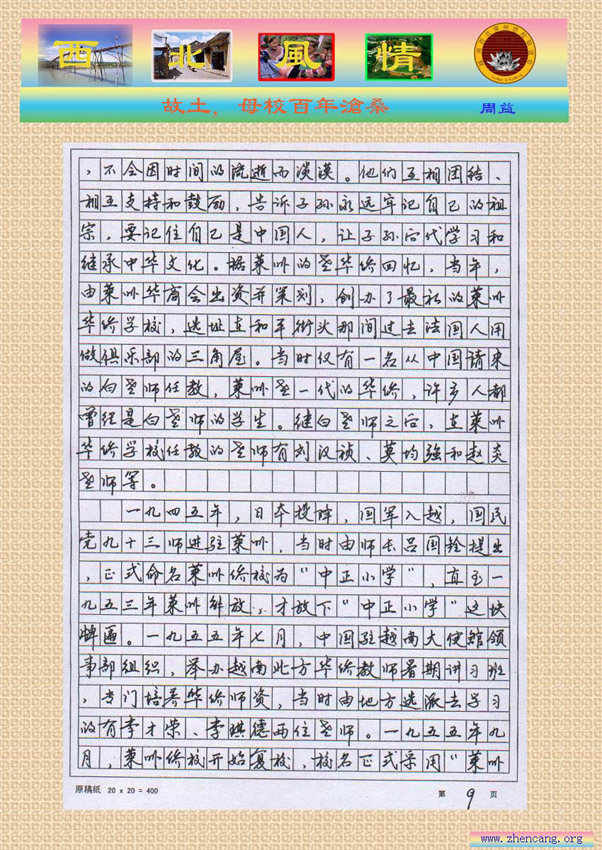 西北風情
故土，母校百年滄桑
周益
，不会因时间的流逝而淡漠。他们互相团结、
相互支持和鼓励，告诉子孙永远牢记自己的祖
宗，要记住自己是中国人，让子孙后代学习和
继承中华文化。据莱州的老华侨回忆，当年，
由莱州华商会出资并策划，创办了最初的莱州
华侨学校，选址在和平街头那间过去法国人用
做俱乐部的三角屋。当时仅有一名从中国请来
的白老师任教，莱州老一代的华侨，许多人都
曾经是白老师的学生。继白老师之后，在莱州
华侨学校任教的老师有刘汉祯、莫均強和赵炎
老师等。
一九四五年，日本投降，国军入越，国民
党九十三师进驻莱州，当时由师长吕国铨提出
，正式命名莱州侨校为“中正小学”，直至一
九五三年莱州解放，才放下“中正小学”这块
牌匾。一九五五年七月，中国驻越南大使館领
事部组织，举办越南北方华侨教师暑期讲习班
，专门培养华侨师资，当时由地方选派去学习
的有李才荣、李琪德两位老师。一九五五年九
月，莱州侨校开始复校，校名正式采用“莱州
原稿纸 20 x 20 = 400
第 9 页
www.zhencang.org